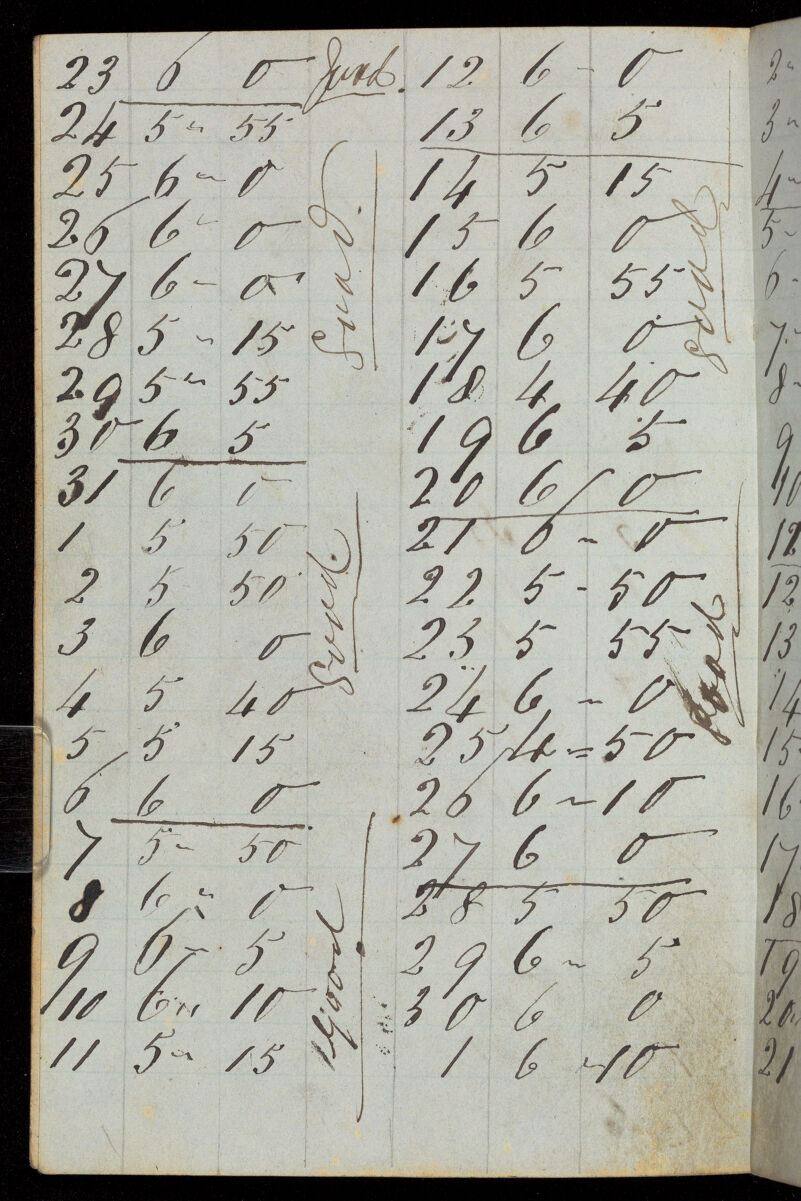 23 6 0 Good.
24 5 " 55
25 6 " 0
26 6 " 0
27 6 - 0
28 5 " 15
29 5 " 55
30 6 5
Good.
31 6 0
1 5 50
2 5 50
3 6 0
4 5 40
5 5 15
6 6 0
Good.
7 5 " 50
8 6 " 0
9 6 " 5
10 6 " 10
11 5 " 15
Good
12 6 - 0
13 6 5
14 5 15
15 6 0
16 5 55
17 6 0
18 4 40
19 6 5
20 6 0
Good
21 6 " 0
22 5 - 50
23 5 55
24 6 " 0
25 4 = 50
26 6 " 10
27 6 0
Good
28 5 50
29 6 " 5
30 6 0
1 6 " 10
2 "
3 "
4 "
5 "
6 -
7 "
8 -
9
10
12
12
13
14
15 "
16
17
18
19
20 "
21